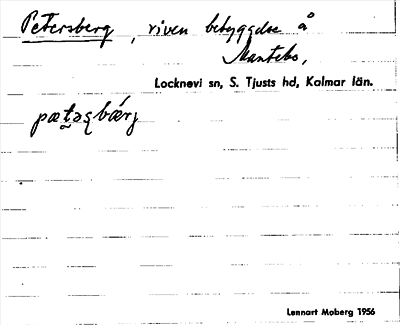 Petersberg, riven bebyggelse å
Mantebo,
Locknevi sn, S. Tjusts hd, Kalmar län.
Lennart Moberg 1956